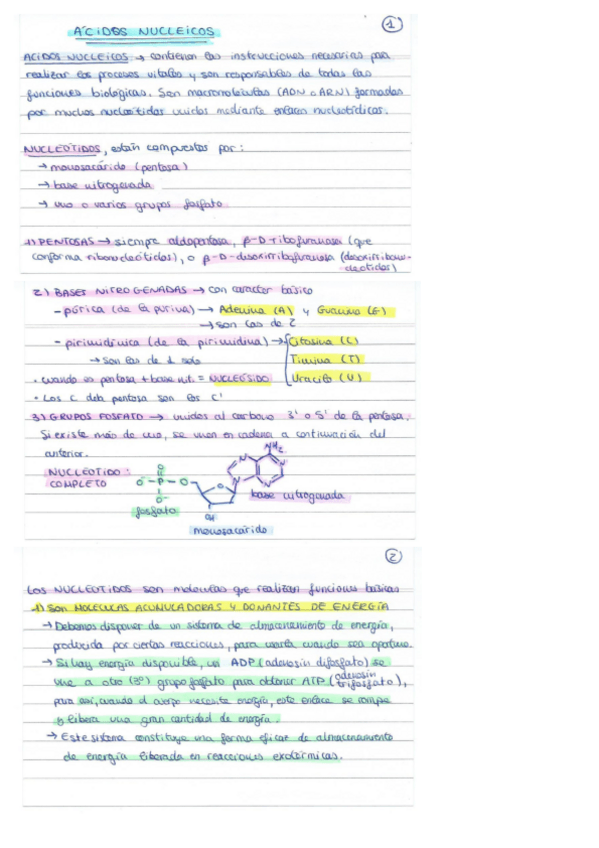 ÁCIDOS NUCLEICOS
1
ACIDOS NUCLEICOS → contienen las instrucciones necesarias para
realizar los procesos vitales y son responsables de todas las
funciones biológicas. Son macromoléculas (ADN o ARN) formadas
por muchos nucleótidos unidos mediante enlaces nucleotídicos.
NUCLEÓTIDOS, están compuestos por:
→ monosacárido (pentosa)
→ base nitrogenada
→ uno o varios grupos fosfato
1) PENTOSAS → siempre aldopentosa, β-D-ribofuranosa (que
conforma ribonucleótidos), o β-D-desoxirribofuranosa (desoxirribonu-
cleótidos)
2) BASES NITROGENADAS → con caracter básico
- púrica (de la purina) → Adenina (A) y Guanina (G)
→ son las de 2
- pirimidínica (de la pirimidina) → Citosina (C)
→ son las de 1 solo
Timina (T)
· cuando es pentosa + base nit. = NUCLEÓSIDO
Uracilo (U)
· Los C de la pentosa son los C'
3) GRUPOS FOSFATO → unidos al carbono 3' o 5' de la pentosa.
Si existe más de uno, se unen en cadena a continuación del
anterior.
NUCLEÓTIDO:
COMPLETO
NH₂
N
N
N
N
O
O⁻-P-O
O⁻
O
OH
base nitrogenada
fosfato
monosacárido
2
Los NUCLEÓTIDOS son moléculas que realizan funciones básicas
1) SON MOLÉCULAS ACUMULADORAS Y DONANTES DE ENERGÍA
→ Debemos disponer de un sistema de almacenamiento de energía,
producida por ciertas reacciones, para usarla cuando sea oportuno.
→ Si hay energía disponible, un ADP (adenosín difosfato) se
une a otro (3º) grupo fosfato para obtener ATP (adenosín trifosfato),
para así, cuando el cuerpo necesite energía, este enlace se rompe
y libera una gran cantidad de energía.
→ Este sistema constituye una forma eficaz de almacenamiento
de energía liberada en reacciones exotérmicas.